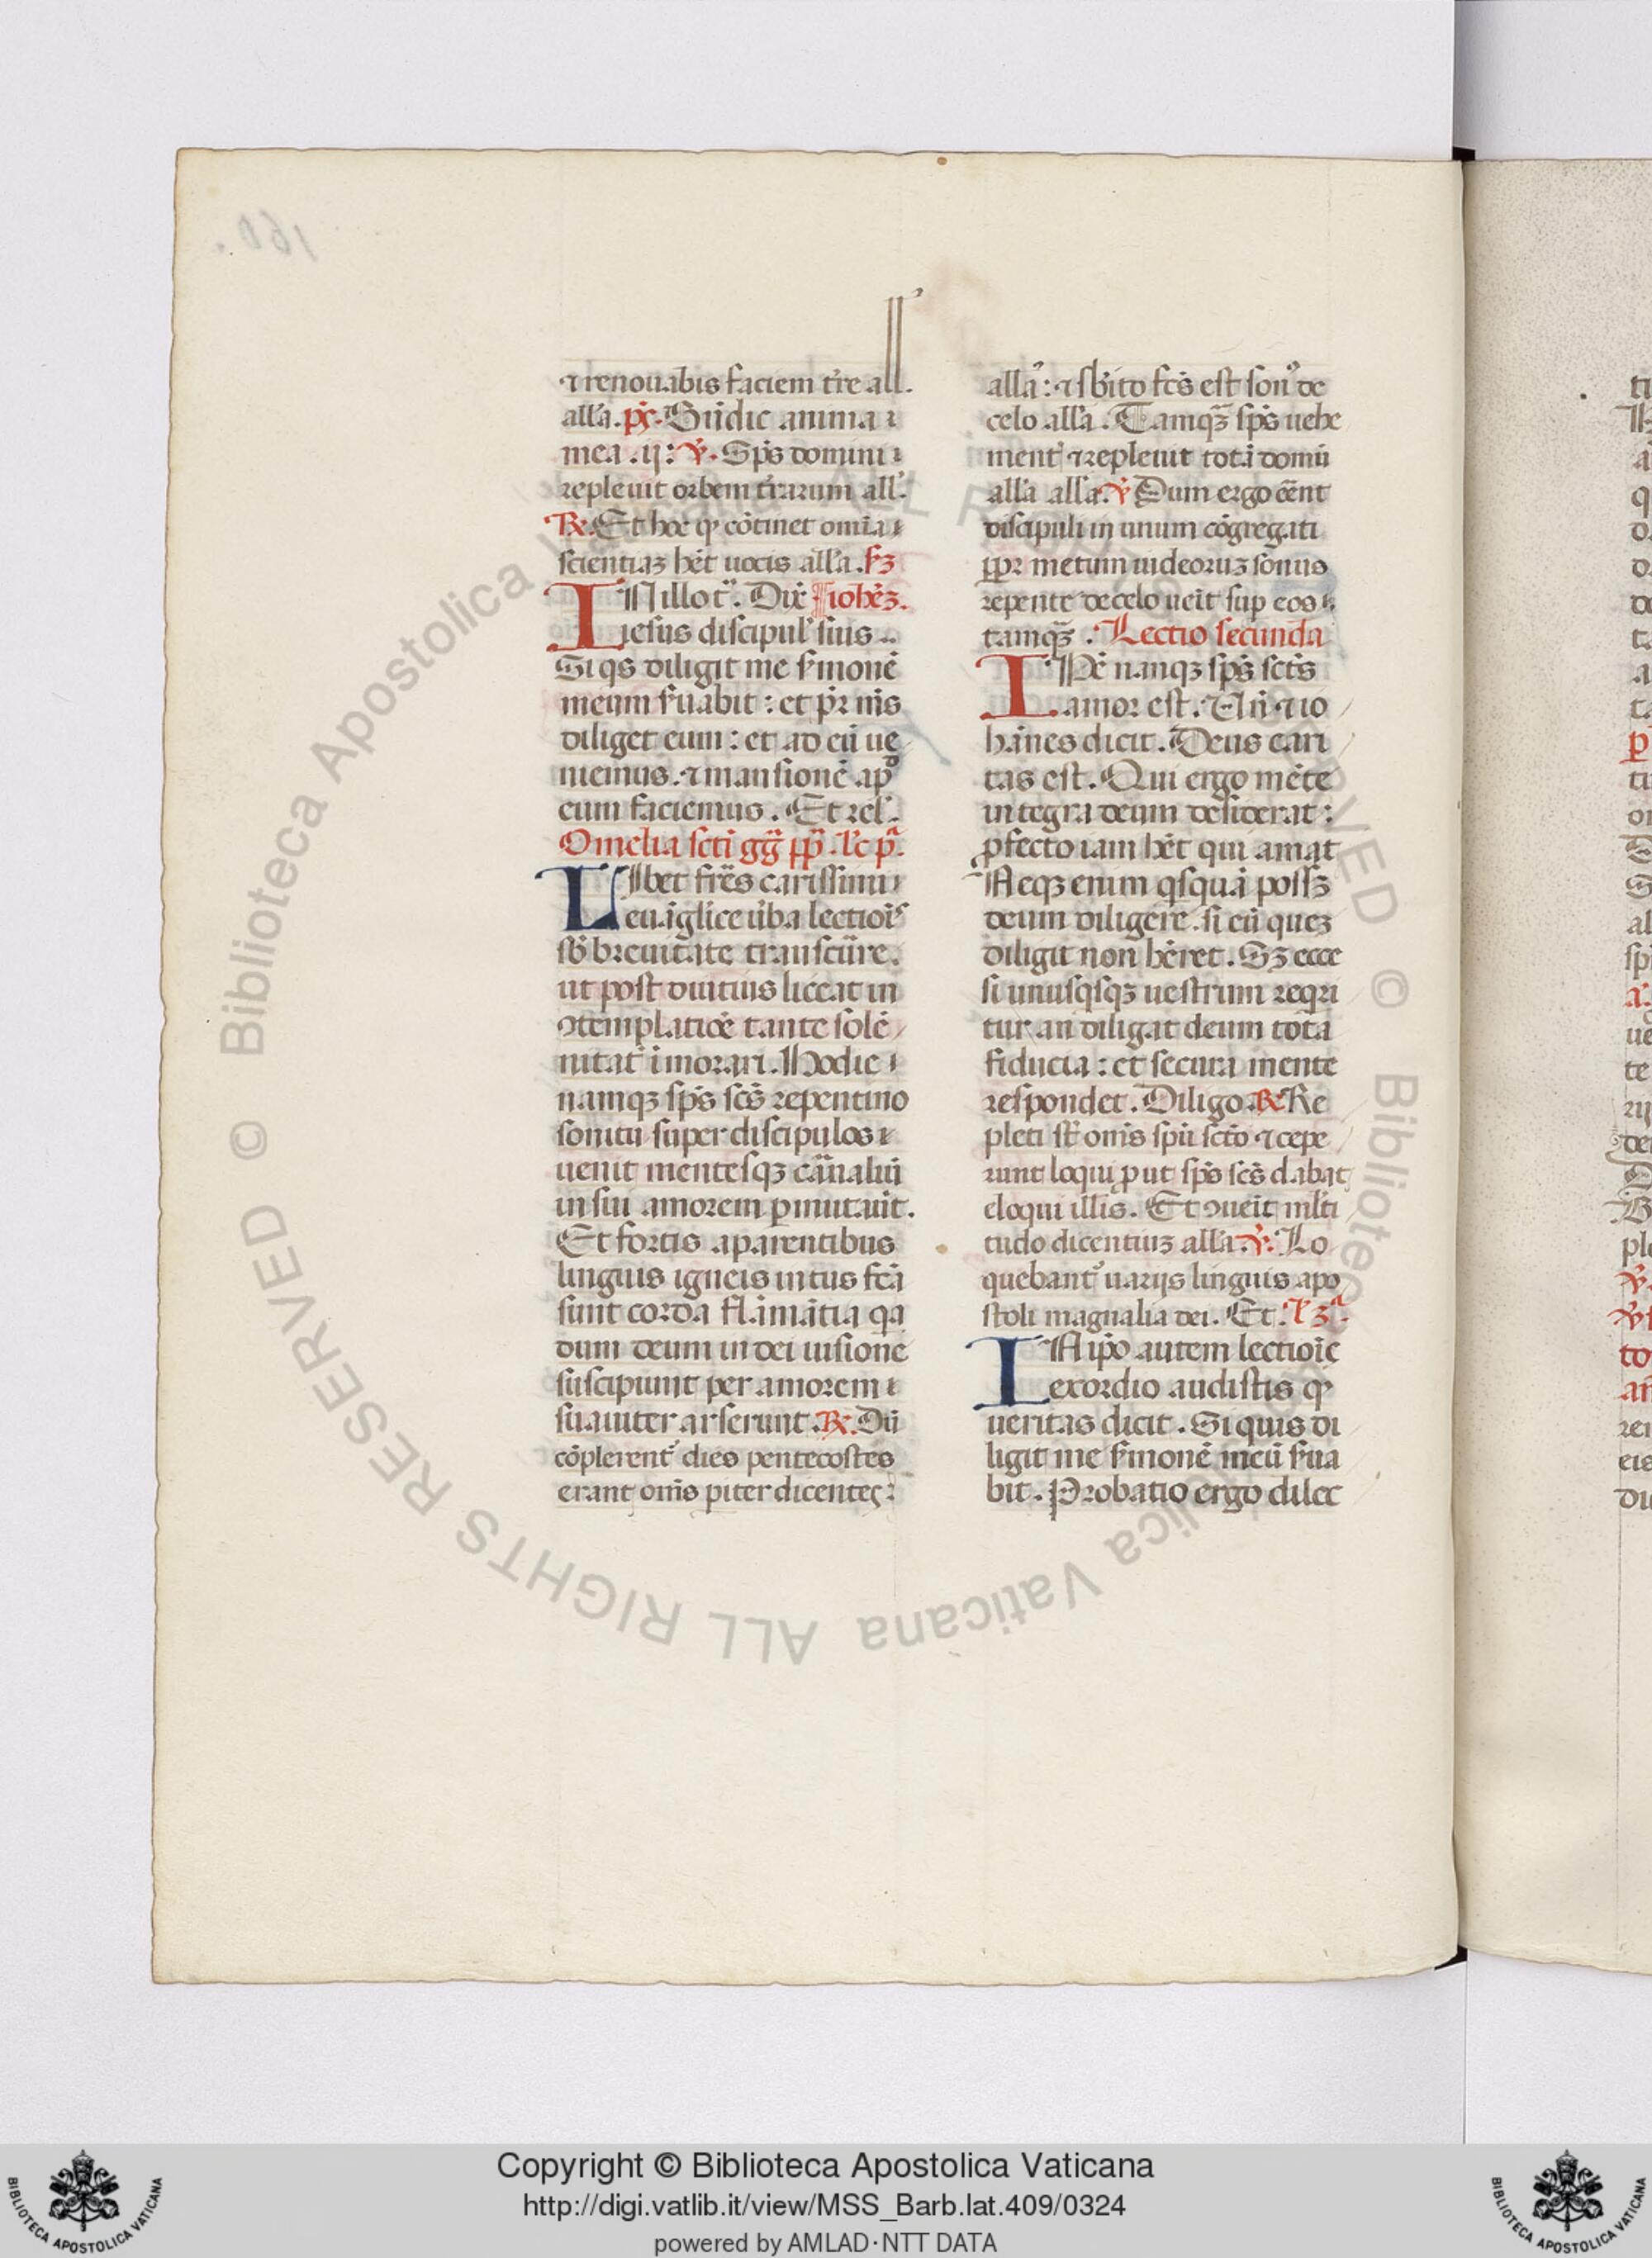 ⁊ renouabis faciem tr̄re all.
all'a. ps̄. B̄n̄dic anima
mea .ij: ℣. Sp̄s domini
repleuit orbem tr̄rarum all'.
℟. Et hoc qͥ cōtinet omīa
scientiaꝫ hēt uocis all'a. sꝫ
IN illo t̄. Dix̄ ioh̄eꝫ.
iesus discipul' suis.
Si qs diligit me s̄monē
meum s̄uabit: et pr̄ m̄s
diliget eum: et ad eū ue
niemus. ⁊ mansionē apͩ
eum faciemus. Et rel'.
Omelia sc̄i gḡ pp̄. l'c pͣ.
Libet fr̄es carissimi
euāglice ūba lectiōis
sb̄ breuitate transcūre.
ut post diutius liceat in
ꝯtemplatiōe tante solē
nitat' īmorari. Hodie
namqꝫ sp̄s sc̄s repentino
sonitu super discipulos
uenit mentesqꝫ cārnaliū
in sui amorem ꝑmutauit.
Et foris aparentibus
linguis igneis intus fc̄a
sunt corda flāmātia qa
dum deum in dei uisione
suscipiunt per amorem
suauiter arserunt. ℟. Dū
cōplerent' dies pentecostes
erant om̄s piter dicentes:
all'a: ⁊ sb̄ito fc̄s est son' de
celo all'a. Tamqꝫ sp̄s uehe
ment' ⁊ repleuit totā domū
all'a all'a. ℣ Dum ergo cēnt
discipuli in unum cōgregati
ꝓpr metum iudeoruꝫ sonus
repente de celo ueīt sup eos
tamqꝫ. Lectio secunda
IPē namqꝫ sp̄s sc̄ts
amor est. Un̄ ⁊ io
hānes dicit. Deus cari
tas est. Qui ergo mēte
integra deum desiderat:
ꝓfecto iam hēt qui amat
Neqꝫ enim qsquā possꝫ
deum diligere. si eū queꝫ
diligit non hēret. Sꝫ ecce
si unusqsqꝫ uestrum reqri
tur an diligat deum tota
fiducia: et secura mente
respondet. Diligo. ℟ Re
pleti st̄ om̄s spū sc̄to ⁊ cepe
runt loqui ꝓut sp̄s sc̄s dabat
eloqui illis. Et ꝯueīt ml'ti
tudo dicentiuꝫ all'a. ℣. Lo
quebant' uariis linguis apo
stoli magnalia dei. Et. l' 3ͣ.
IN ipō autem lectiōis
exordio audistis qͥ
ueritas dicit. Si quis di
ligit me s̄monē meū s̄ua
bit. Probatio ergo dilec
160.
© Biblioteca Apostolica Vaticana ALL RIGHTS RESERVED © Biblioteca Apostolica Vaticana ALL RIGHTS RESERVED
Copyright © Biblioteca Apostolica Vaticana
http://digi.vatlib.it/view/MSS_Barb.lat.409/0324
powered by AMLAD·NTT DATA
BIBLIOTECA APOSTOLICA VATICANA
BIBLIOTECA APOSTOLICA VATICANA